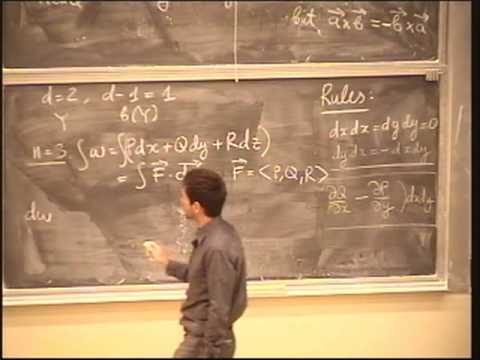 but, a⃗×b⃗ = -b⃗×a⃗
d=2, d-1=1
Y b(Y)
n=3. ∫ω = ∫(Pdx+Qdy+Rdz)
= ∫ F⃗ · d F⃗ = <P,Q,R>
dω
Rules:
dxdx = dydy = 0
dydx = -dxdy
∂Q/∂x - ∂P/∂y)dxdy